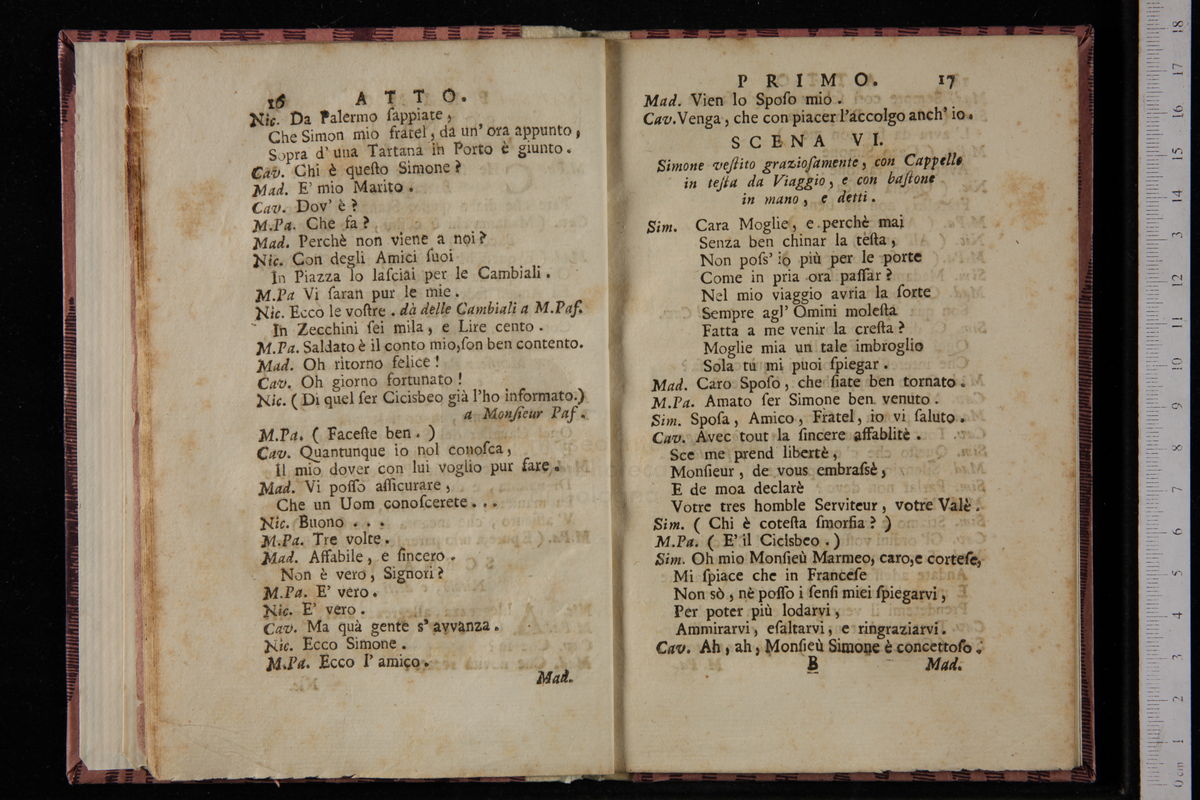 16 ATTO.
Nic. Da Palermo ſappiate,
Che Simon mio fratel, da un' ora appunto,
Sopra d' una Tartana in Porto è giunto.
Cav. Chi è queſto Simone?
Mad. E' mio Marito.
Cav. Dov' è?
M.Pa. Che fa?
Mad. Perchè non viene a noi?
Nic. Con degli Amici ſuoi
In Piazza lo laſciai per le Cambiali.
M.Pa Vi ſaran pur le mie.
Nic. Ecco le voſtre. dà delle Cambiali a M.Paſ.
In Zecchini ſei mila, e Lire cento.
M.Pa. Saldato è il conto mio,ſon ben contento.
Mad. Oh ritorno felice!
Cav. Oh giorno fortunato!
Nic. (Di quel ſer Cicisbeo già l'ho informato.)
a Monſieur Paſ.
M.Pa. (Faceſte ben.)
Cav. Quantunque io nol conoſca,
Il mio dover con lui voglio pur fare.
Mad. Vi poſſo aſſicurare,
Che un Uom conoſcerete...
Nic. Buono ...
M.Pa. Tre volte.
Mad. Affabile, e ſincero.
Non è vero, Signori?
M.Pa. E' vero.
Nic. E' vero.
Cav. Ma quà gente s' avvanza.
Nic. Ecco Simone.
M.Pa. Ecco l' amico.
Mad.
PRIMO. 17
Mad. Vien lo Spoſo mio.
Cav. Venga, che con piacer l'accolgo anch' io.
SCENA VI.
Simone veſtito grazioſamente, con Cappello
in teſta da Viaggio, e con baſtone
in mano, e detti.
Sim. Cara Moglie, e perchè mai
Senza ben chinar la teſta,
Non poſs' io più per le porte
Come in pria ora paſſar?
Nel mio viaggio avria la ſorte
Sempre agl' Omini moleſta
Fatta a me venir la creſta?
Moglie mia un tale imbroglio
Sola tu mi puoi ſpiegar.
Mad. Caro Spoſo, che ſiate ben tornato.
M.Pa. Amato ſer Simone ben venuto.
Sim. Spoſa, Amico, Fratel, io vi ſaluto.
Cav. Avec tout la ſincere affablitè.
Sce me prend libertè,
Monſieur, de vous embraſsè,
E de moa declarè
Votre tres homble Serviteur, votre Valè.
Sim. (Chi è coteſta ſmorfia?)
M.Pa. (E' il Cicisbeo.)
Sim. Oh mio Monſieù Marmeo, caro,e corteſe,
Mi ſpiace che in Franceſe
Non sò, nè poſſo i ſenſi miei ſpiegarvi,
Per poter più lodarvi,
Ammirarvi, eſaltarvi, e ringraziarvi.
Cav. Ah, ah, Monſieù Simone è concettoſo.
B Mad.